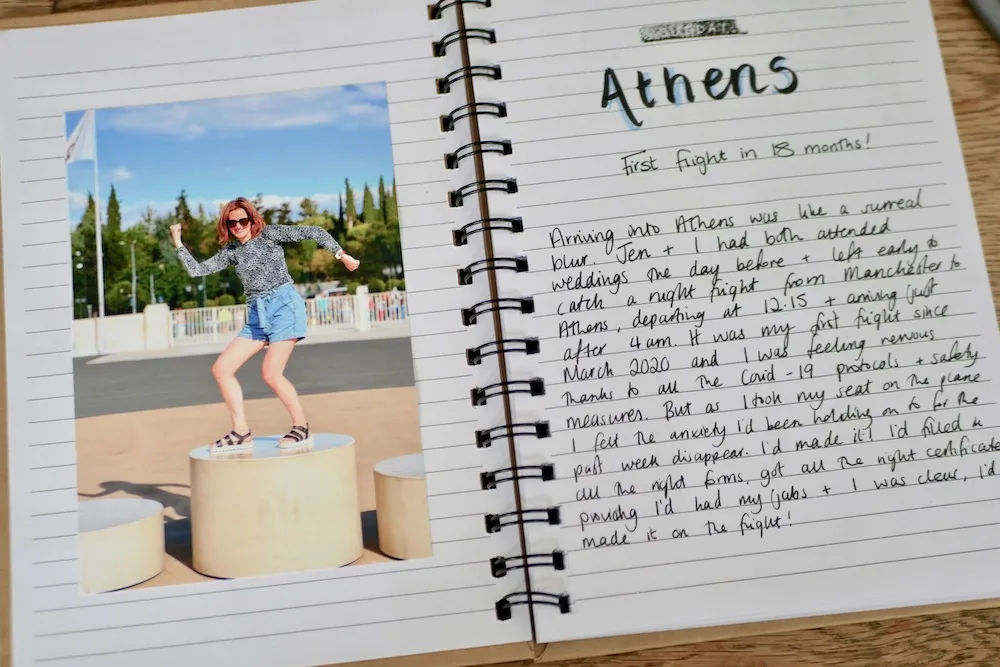 Athens
First flight in 18 months!
Arriving into Athens was like a surreal
blur. Jen + I had both attended
weddings the day before + left early to
catch a night flight from Manchester to
Athens, departing at 12:15 + arriving just
after 4am. It was my first flight since
March 2020 and I was feeling nervous
thanks to all the Covid-19 protocols + safety
measures. But as I took my seat on the plane
I felt the anxiety I'd been holding on to for the
past week disappear. I'd made it! I'd filled in
all the right forms, got all the right certificates
proving I'd had my jabs + I was clear, I'd
made it on the flight!